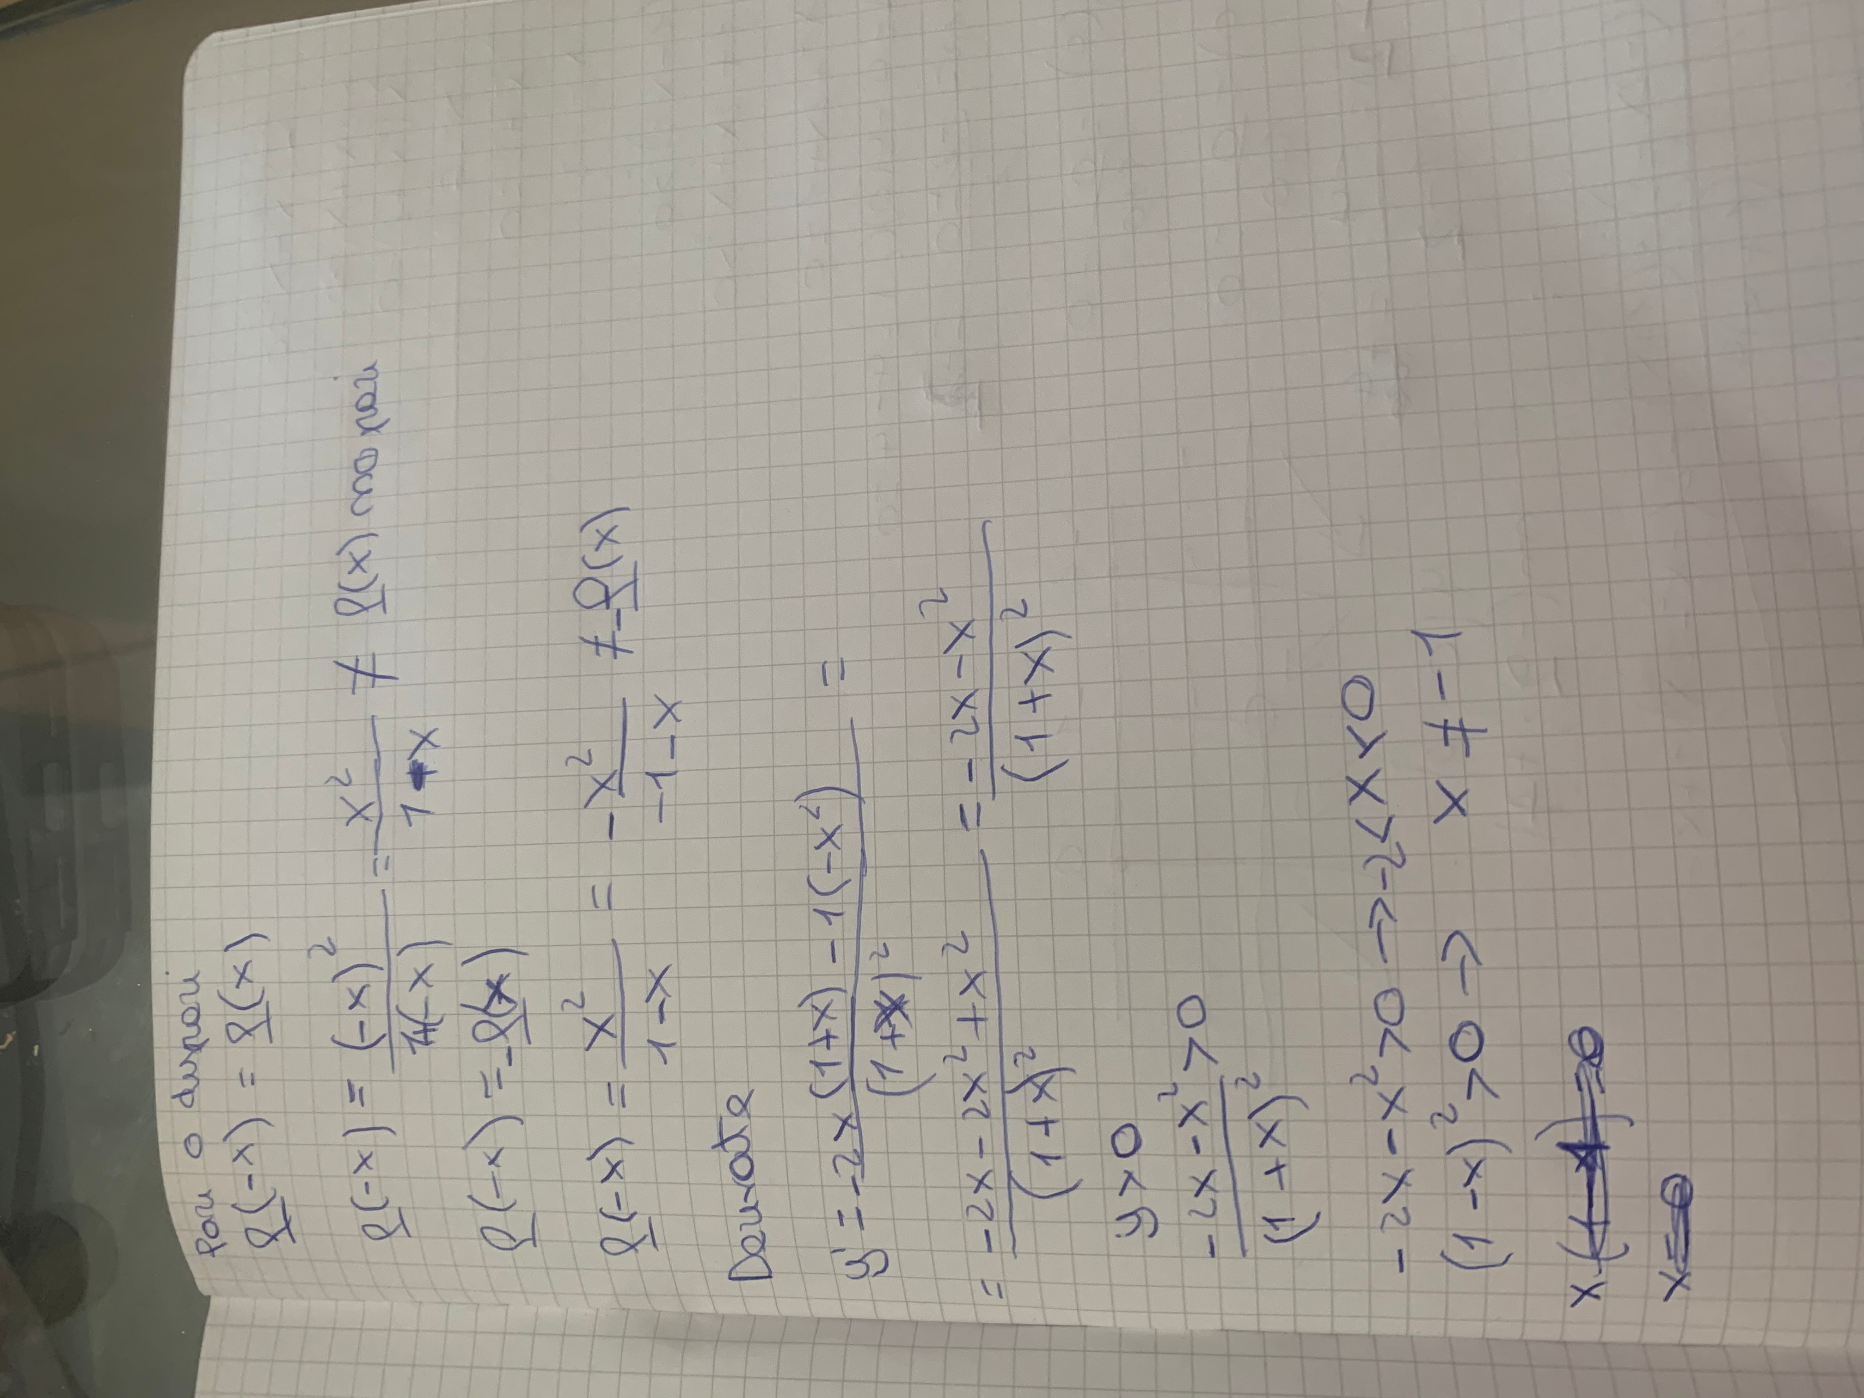 Pari o dispari
f(-x) = f(x)
f(-x) = (-x)²/1+(-x) = x²/1-x ≠ f(x) no pari
f(-x) = -f(x)
f(-x) = x²/1-x = -x²/-1-x ≠ -f(x)
Derivata
y' = -2x(1+x) - 1(-x²)/(1+x)² =
= -2x - 2x² + x²/(1+x)² = -2x - x²/(1+x)²
y > 0
-2x - x²/(1+x)² > 0
-2x - x² > 0 → -2 < x < 0
(1-x)² > 0 → x ≠ -1
x
x